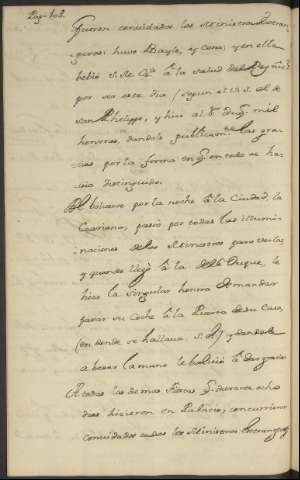 Pag. 102.
Fueron convidados los Ministros Estran-
geros: huvo Bayle, y cena: y en ella
bebió S. M. Cz.ª à la salud del Rey nrô S.r
por ser este dia (segun el
San Phelippe, y hizo al Duq. mil
honrras, dandole publicam.te las gra-
cias por la forma en q. en todo se ha-
via distinguido.
Al bolverse por la noche à la Ciudad, la
Czariana, pasó por todas las illumi-
naciones de los Ministros para verlas
y quando llegó à la del Duque, le
hizo la singular honra de mandar
parar su Coche à la Puerta de su Casa,
(en donde se hallava S. E.) y dandole
a besar la mano le bolvió à dar gracias
A todas las demas Fiestas q. durante ocho
dias hicieron en Palacio, concurrieron
convidados todos los Ministros Estrangeros